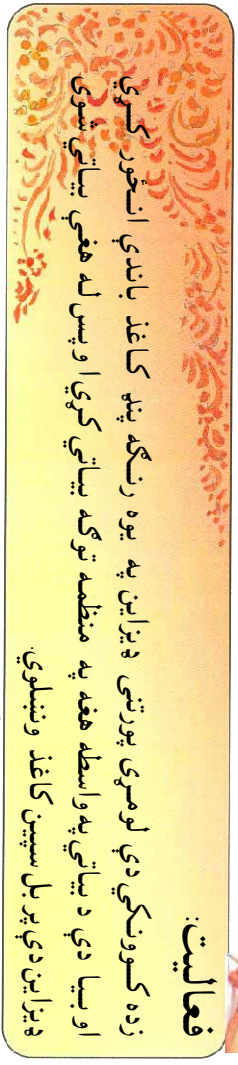 فعالیت:
زده کوونکي دې لومړی پورتنی ډیزاین په یوه رنګه پنډ کاغذ باندې انځور کړي
او بیا دې د بیاتي په واسطه هغه په منظمه توګه بیاتي کړي او پس له هغې بیاتي شوي
ډیزاین دې پر بل سپین کاغذ ونښلوي.